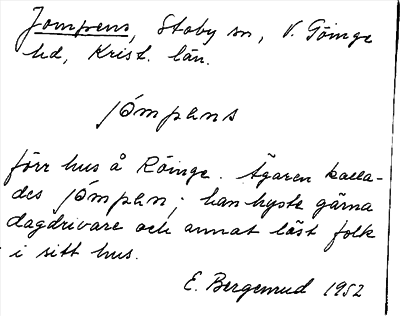 Jompens, Stoby sn, V. Göinge
hd, Krist. län.
jómpens
förr hus å Röinge. Ägaren kalla-
des jómpen; han hyste gärna
dagdrivare och annat löst folk
i sitt hus.
E. Bergemud 1952